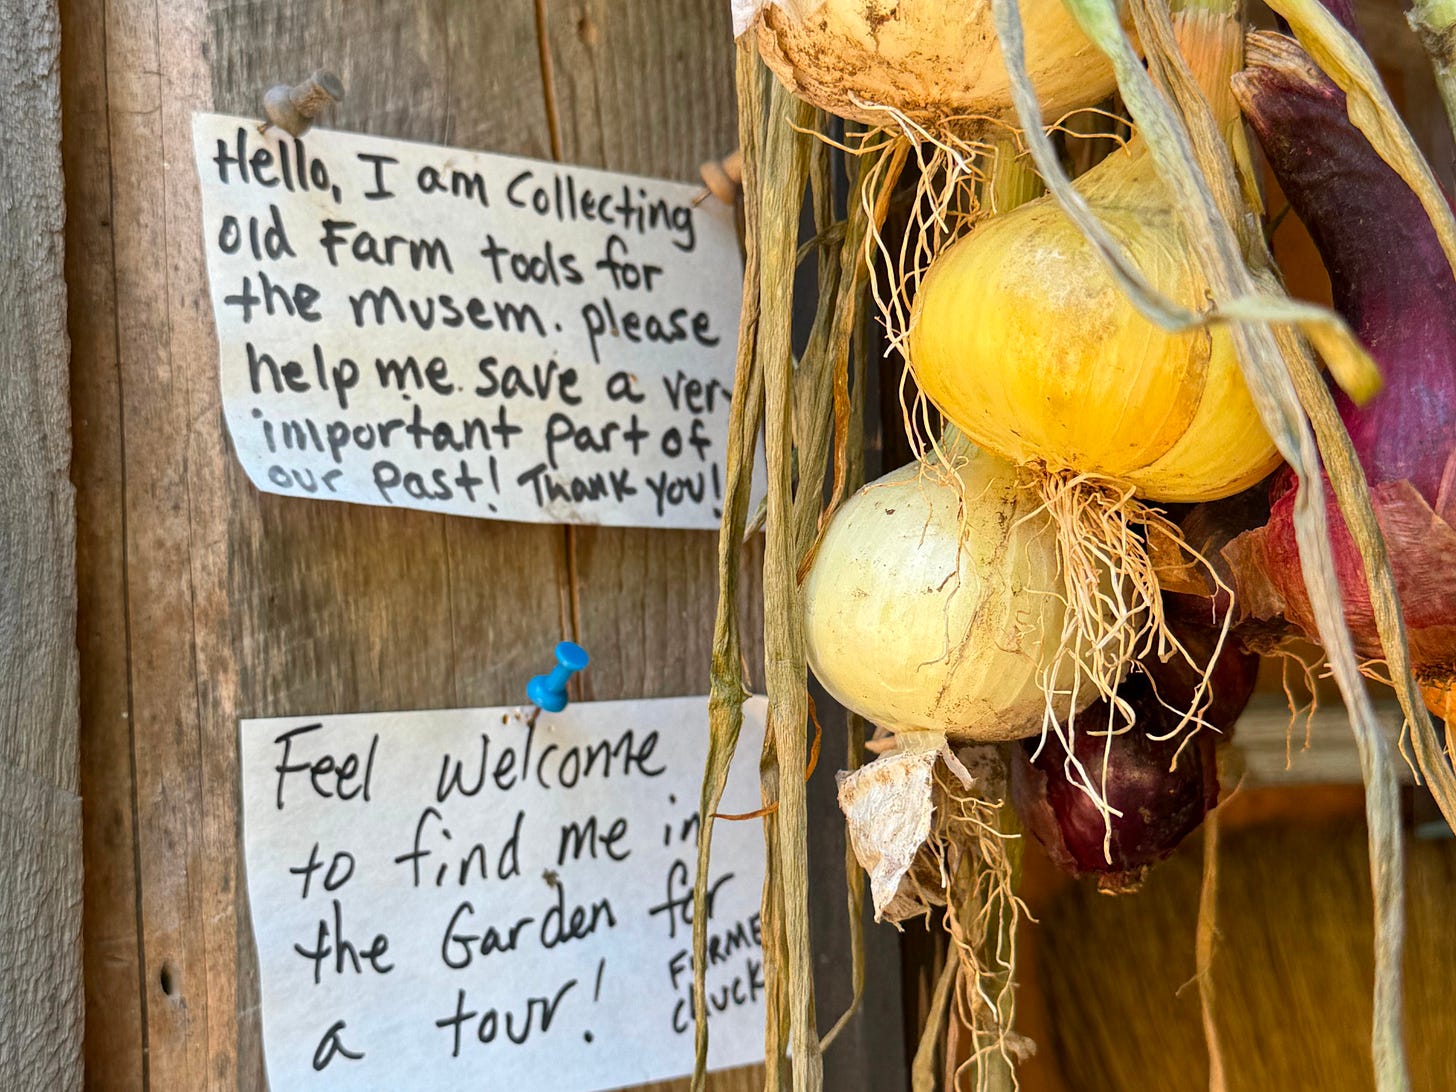 Hello, I am Collecting
old Farm tools for
the musem. please
help me save a very
important part of
our Past! Thank you!
Feel welcome
to find me in
the Garden for
a tour!
FARME
CHUCK